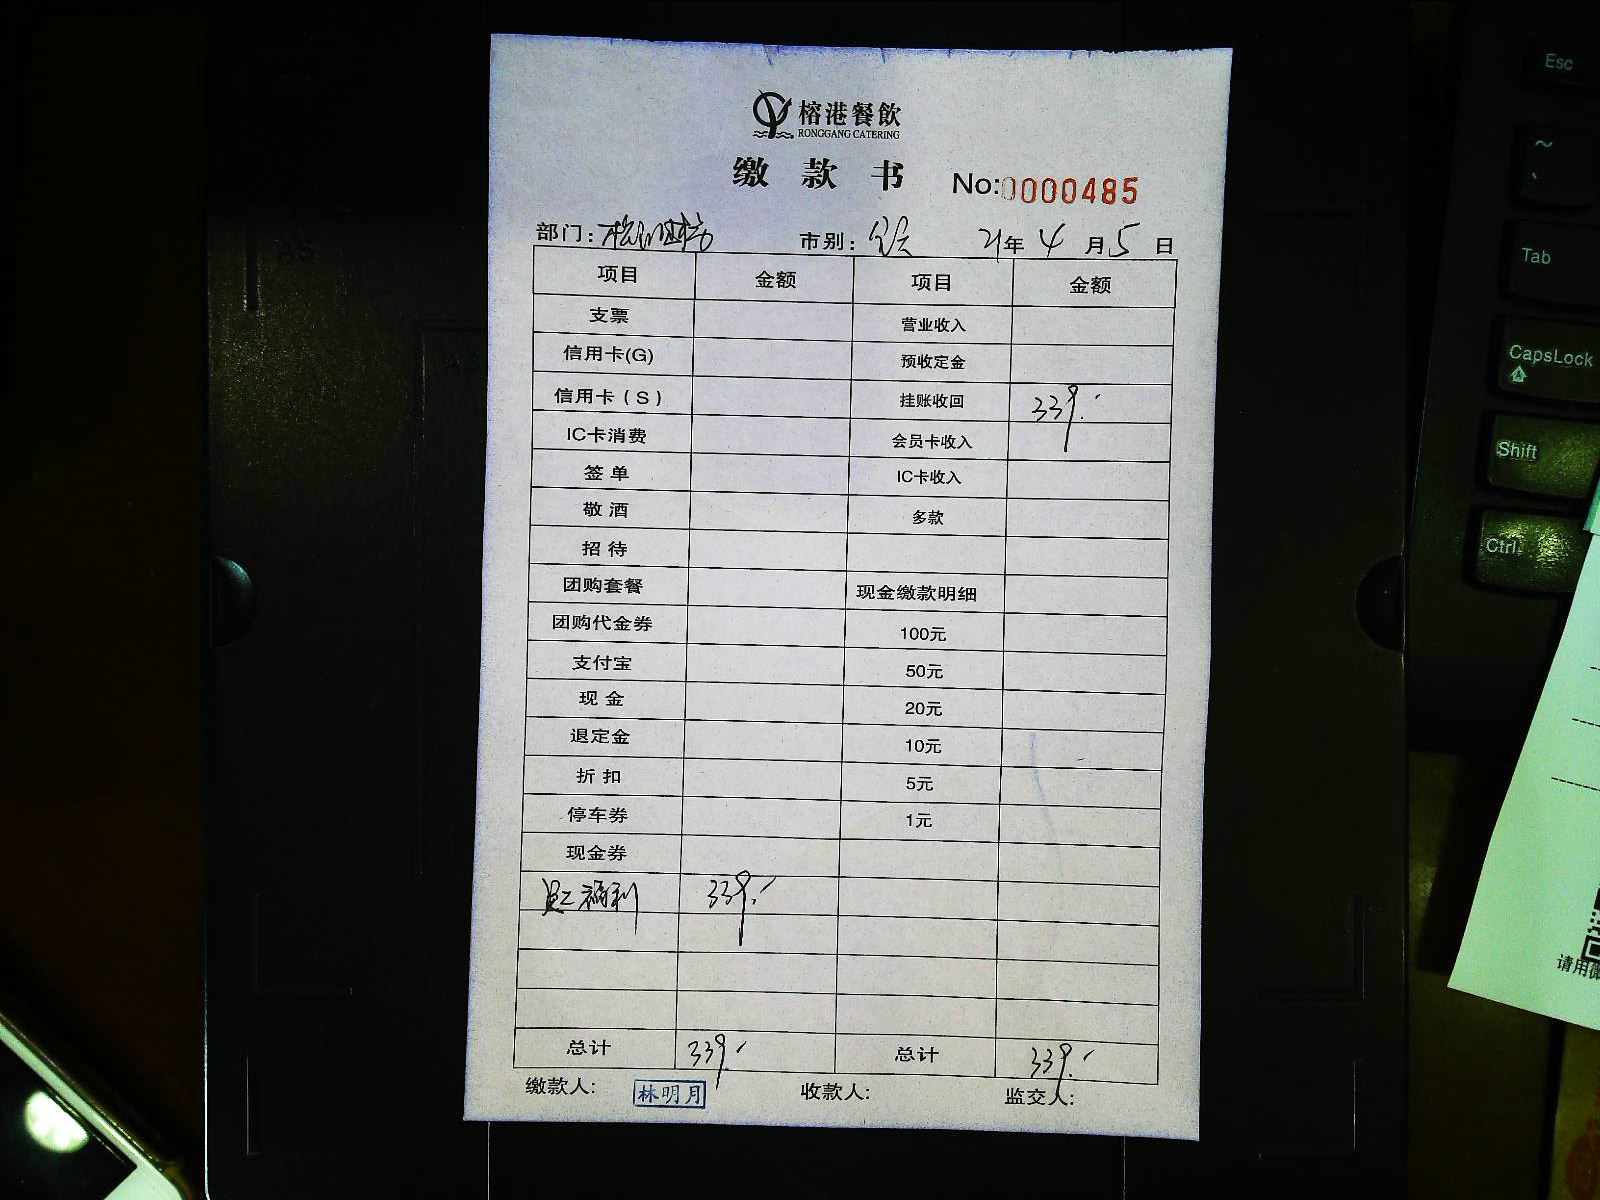 榕港餐飲
RONGGANG CATERING
缴 款 书 No:0000485
部门: 市别: 21年 4 月 5 日
项目 金额 项目 金额
支票 营业收入
信用卡(G) 预收定金
信用卡（S） 挂账收回 339.-
IC卡消费 会员卡收入
签 单 IC卡收入
敬 酒 多款
招 待
团购套餐 现金缴款明细
团购代金券 100元
支付宝 50元
现 金 20元
退定金 10元
折 扣 5元
停车券 1元
现金券
员工福利 339.-
总计 339.- 总计 339.-
缴款人: 林明月 收款人: 监交人:
Esc
~
、
Tab
CapsLock
Shift
Ctrl
请用微